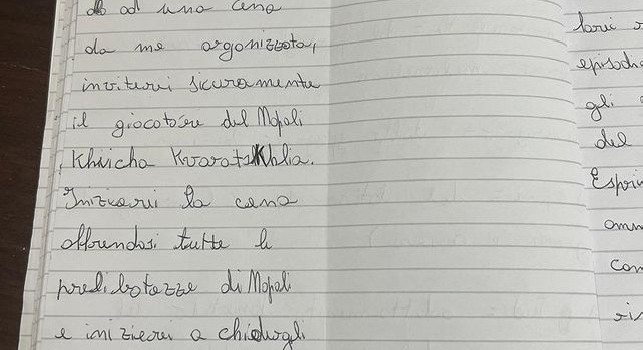 ad una cena
da me organizzata,
inviterei sicuramente
il giocatore del Napoli
Khvicha Kvaratskhelia.
Inizierei la cena
offrendosi tutte le
prelibatezze di Napoli
e inizierei a chiedergli
episodi
gli
del